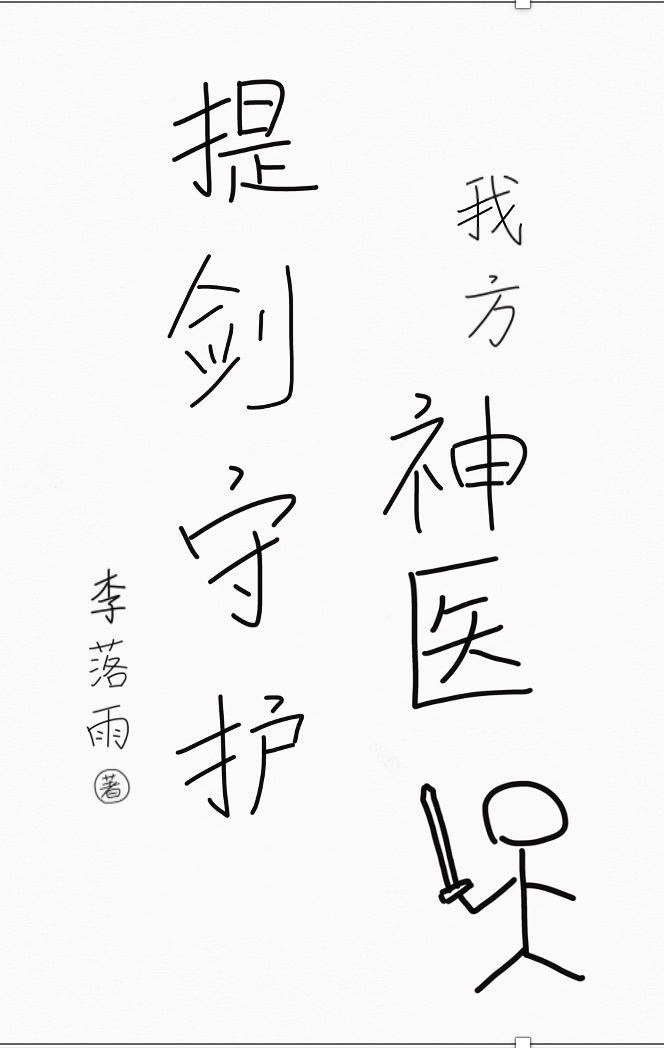 我方神医
提剑守护
李落雨著